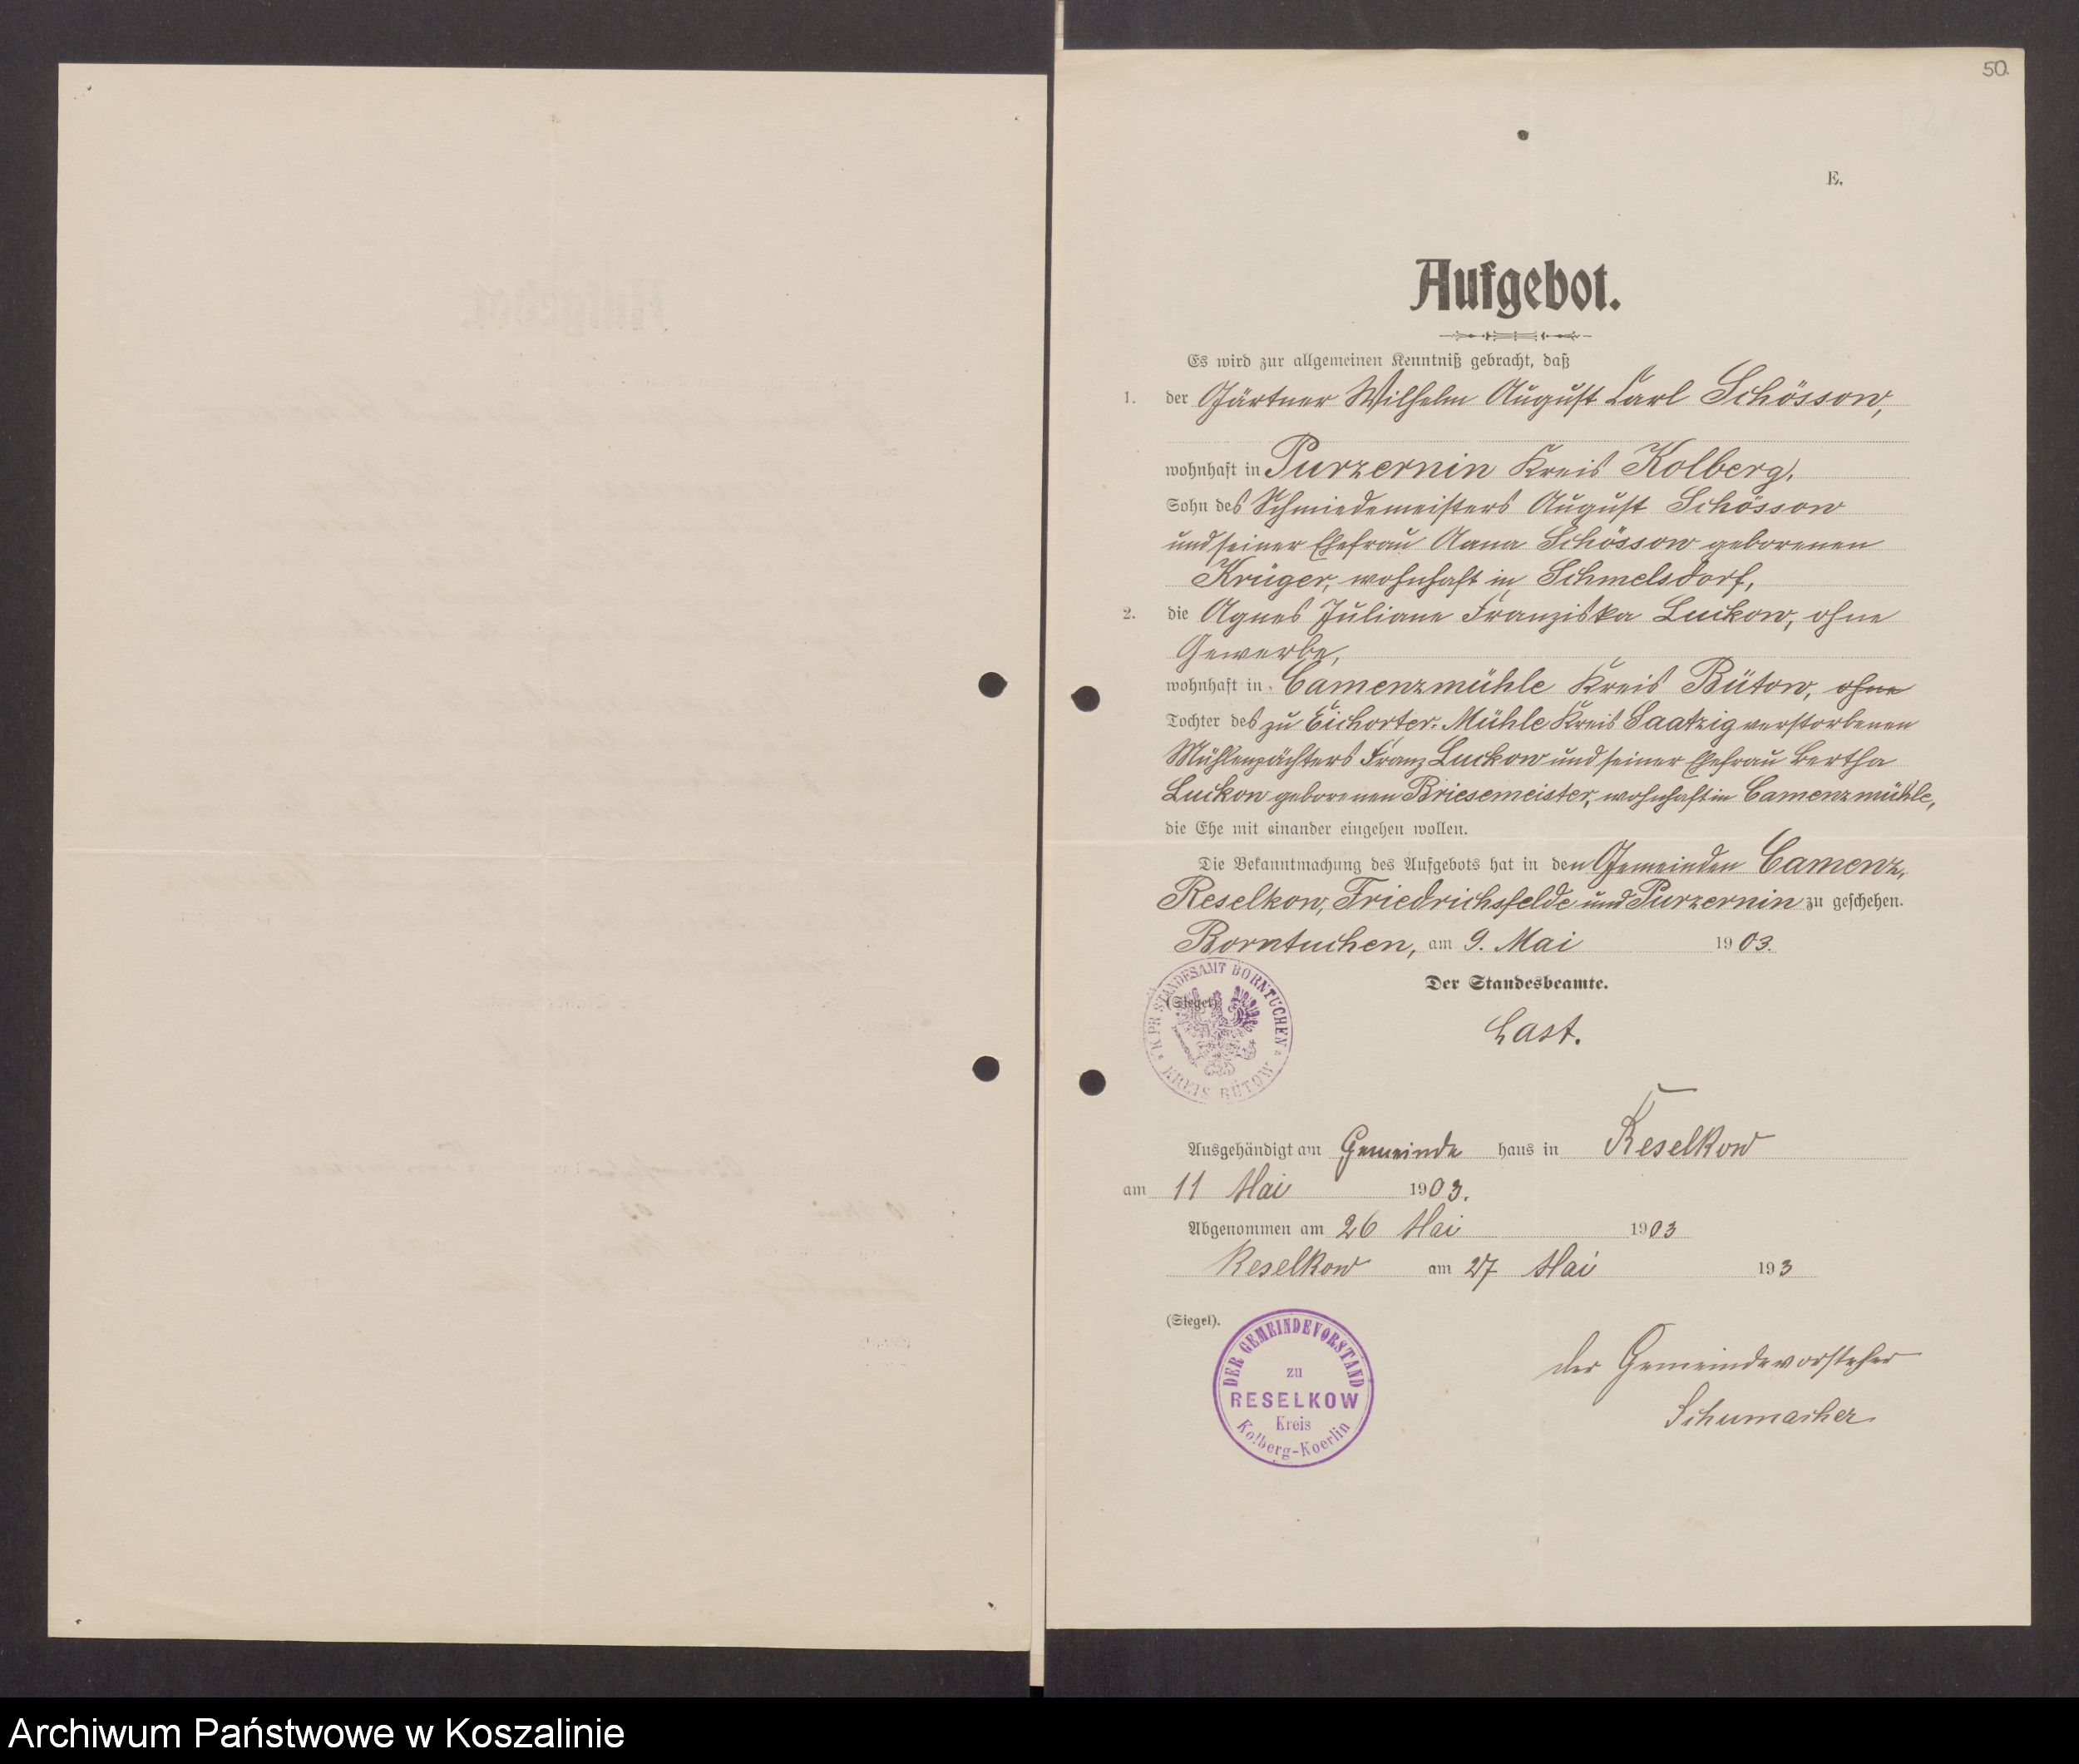 50.
E.
Aufgebot.
Es wird zur allgemeinen Kenntniß gebracht, daß
1. der Gärtner Wilhelm August Carl Schösson,
wohnhaft in Purzernin Kreis Kolberg,
Sohn des Schmiedemeisters August Schösson
und seiner Ehefrau Anna Schösson geborenen
Krüger, wohnhaft in Schmelsdorf,
2. die Agnes Juliane Franziska Luckow, ohne
Gewerbe,
wohnhaft in Camenzmühle Kreis Bütow, ohne
Tochter des zu Eichorter-Mühle Kreis Saatzig verstorbenen
Mühlenpächters Franz Luckow und seiner Ehefrau Bertha
Luckow geborenen Briesemeister, wohnhaft in Camenzmühle,
die Ehe mit einander eingehen wollen.
Die Bekanntmachung des Aufgebots hat in den Gemeinden Camenz,
Reselkow, Friedrichsfelde und Purzernin zu geschehen.
Borntuchen, am 9. Mai 1903.
K. PR. STANDESAMT BORNTUCHEN
KREIS BÜTOW
(Siegel)
Der Standesbeamte.
Last.
Ausgehändigt am Gemeinde haus in Reselkow
am 11 Mai 1903.
Abgenommen am 26 Mai 1903
Reselkow am 27 Mai 193
(Siegel).
DER GEMEINDEVORSTAND
zu
RESELKOW
Kreis
Kolberg-Koerlin
der Gemeindevorsteher
Schumacher
Archiwum Państwowe w Koszalinie